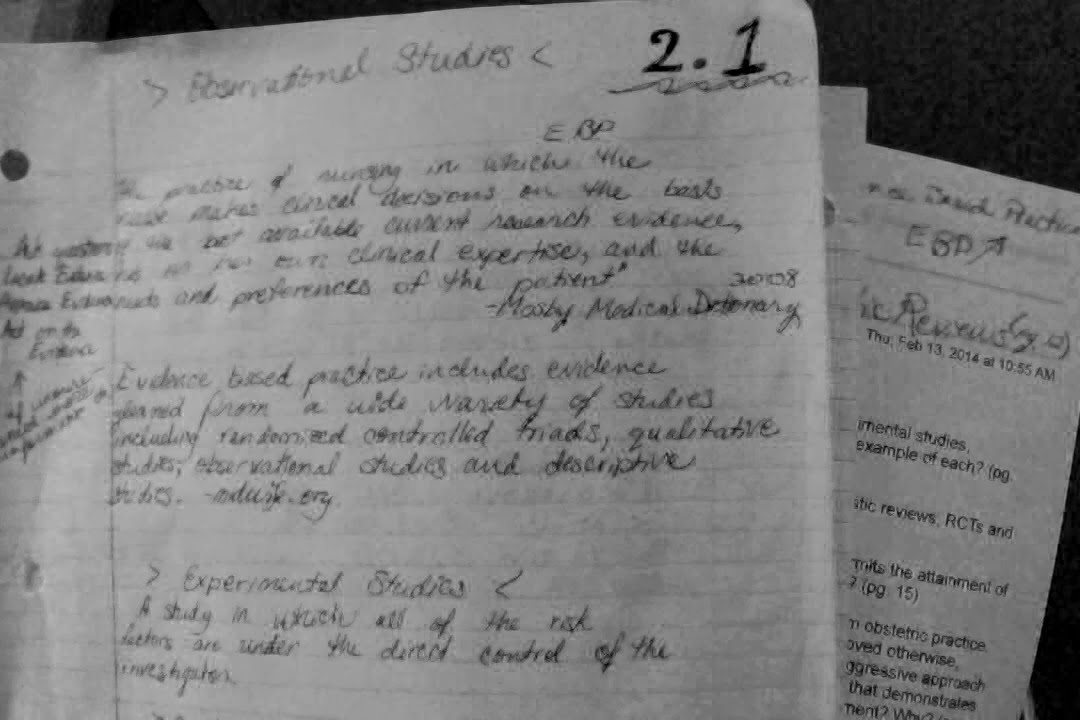 2.1
> Observational Studies <
EBP
The practice of nursing in which the
nurse makes clinical decisions on the basis
best available current research evidence,
clinical expertise, and the
needs and preferences of the patient"
-Mosby Medical Detonary
Act on the
Evidence
Evidence based practice includes evidence
gleaned from a wide warety of studies
including randomized controlled triads, qualitative
studies, observational studies and descriptive
studies.
> Experimental Studies <
A study in which all of the risk
factors are under the direct control of the
investigator.
Based Practice
EBP
ic Reviews (pg.
Thu, Feb 13, 2014 at 10:55 AM
imental studies,
example of each? (pg.
atic reviews, RCTs and
rmits the attainment of
? (pg. 15)
n obstetric practice
oved otherwise,
ggressive approach
that demonstrates
ment? Why?